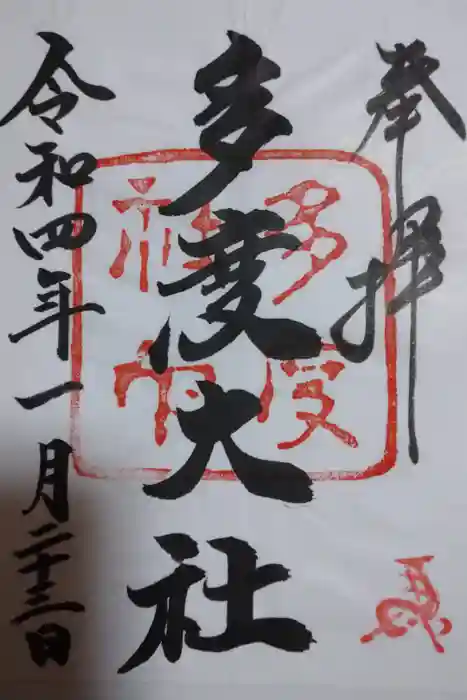 奉拝
多度大社
令和四年一月二十三日
多度
神社